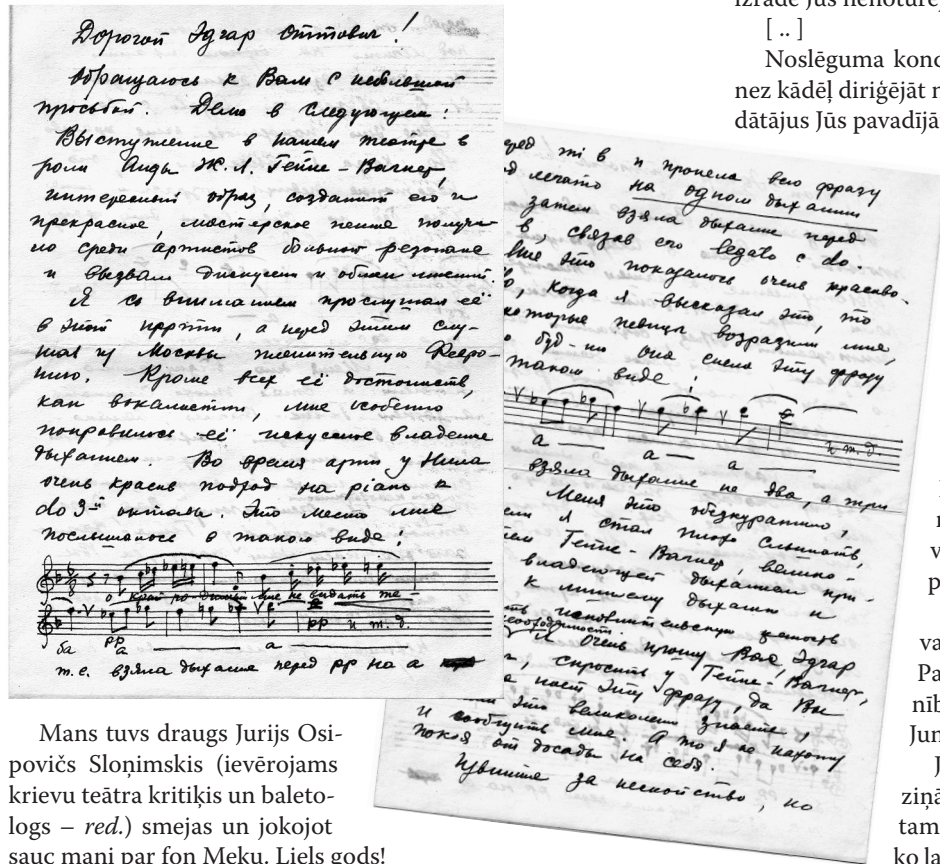 Дорогой Эдгар Оттович!
Обращаюсь к Вам с небольшой
просьбой. Дело в следующем:
Выступление в нашем театре в
роли Аиды Ж. Л. Гейне-Вагнер,
интересный образ, созданный ею и
прекрасное, мастерское пение получи-
ло среди артистов большой резонанс
и вызвал дискуссии и обмен мнений.
Я со вниманием прослушал её
в этой партии, а перед этим слу-
шал из Москвы пленительную Февро-
нию. Кроме всех её достоинств,
как вокалистки, мне особенно
понравилось её искусное владение
дыханием. Во время арии у Нила
очень красив подход на piano к
do 3-й октавы. Это место мне
послышалось в таком виде:
о край родимый мне не видать те-
бя а а pp и т. д.
pp
т. е. взяла дыхание перед pp на а
перед ми b и пропела всю фразу
легато на одном дыхании
затем взяла дыхание перед
b, связав его legato с do.
Мне это показалось очень красиво.
, когда я высказал это, то
некоторые певицы возразили мне,
буд-то она спела эту фразу
таком виде:
а а а и т. д.
взяла дыхание не два, а три
Меня это обескуражило,
я стал плохо слышать,
Гейне-Вагнер, велико-
владеющей дыханием при-
к лишнему дыханию и
исполнительскую ценность
необходимости.
Очень прошу Вас, Эдгар
, спросить у Гейне-Вагнер,
поёт эту фразу, да Вы
это великолепно знаете,
и сообщить мне. А то я не нахожу
покоя от досады на себя.
Извините за беспокойство, но
Mans tuvs draugs Jurijs Osi-
povičs Sloņimskis (ievērojams
krievu teātra kritiķis un baleto-
logs – red.) smejas un jokojot
sauc mani par fon Meku. Liels gods!
[ .. ]
Noslēguma konc
nez kādēļ diriģējāt n
dātājus Jūs pavadījā